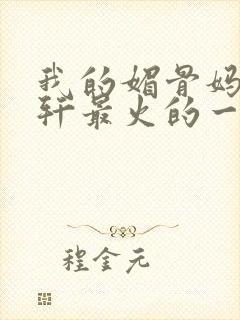 我的媚骨妈
轩最火的一
程金元